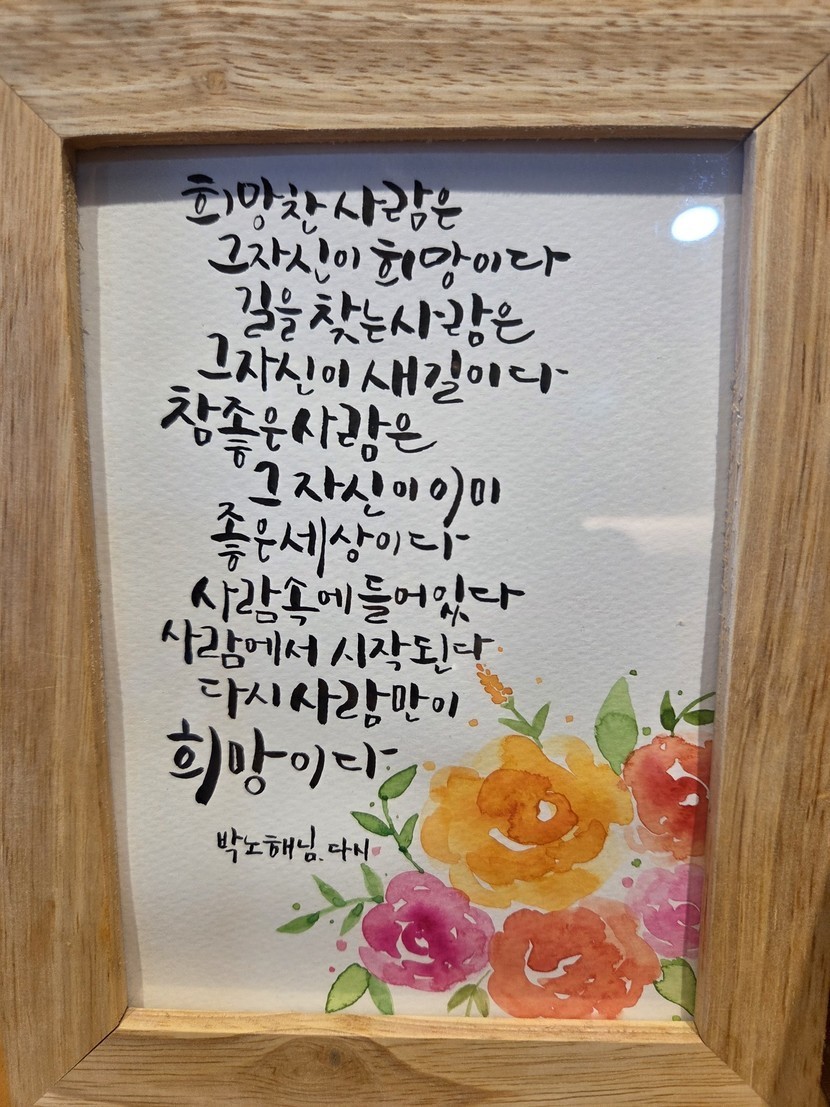 희망찬 사람은
그 자신이 희망이다
길을 찾는 사람은
그 자신이 새 길이다
참 좋은 사람은
그 자신이 이미
좋은 세상이다
사람 속에 들어있다
사람에서 시작된다
다시 사람만이
희망이다
박노해님. 다시